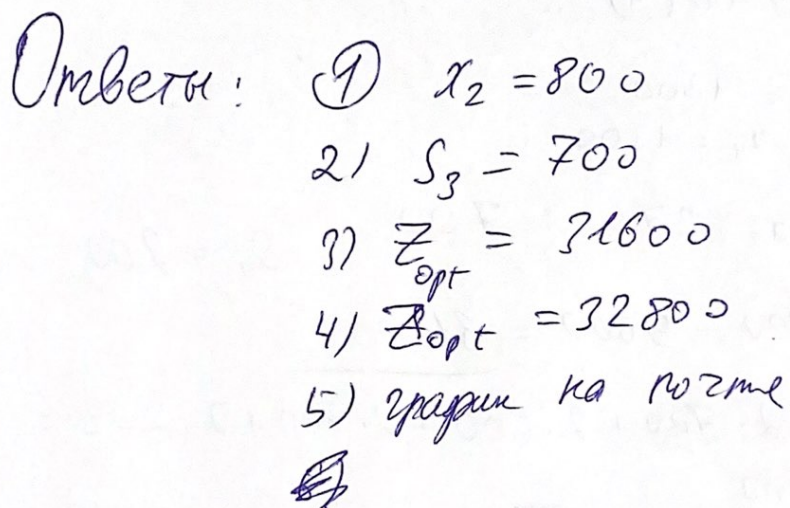 Ответы: ① x₂ = 800
2) S₃ = 700
3) Z_opt = 31600
4) Z_opt = 32800
5) график на почте